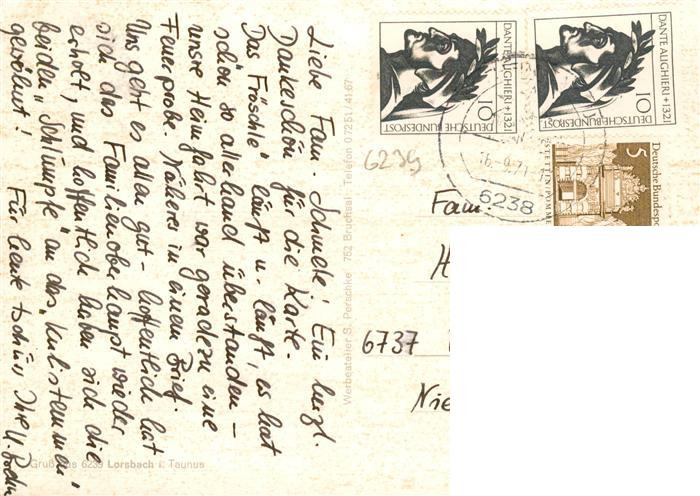 Liebe Fam. Schmehl! Ein herzl.
Dankeschön für die Karte.
Das Fröschle" läuft u. läuft, es hat
schon so allerhand überstanden –
unsre Heimfahrt war geradezu eine
Feuerprobe. Näheres in einem Brief.
Uns geht es allen gut – hoffentlich hat
sich das Familienoberhaupt wieder
erholt, und hoffentlich haben sich die
beiden „Schlümpfe" an das
gewöhnt! Für heute tschüss, Ihre
Gruß aus 6239 Lorsbach i. Taunus
Werbeatelier S. Perschke 752 Bruchsal Telefon 07251/4167
DANTE ALIGHIERI +1321
10
DEUTSCHE BUNDESPOST
DANTE ALIGHIERI +1321
10
DEUTSCHE BUNDESPOST
5
Deutsche Bundespost
STETTIN/POMM
16.-9.71
6238
6239
Fam.
H
6737
Nie